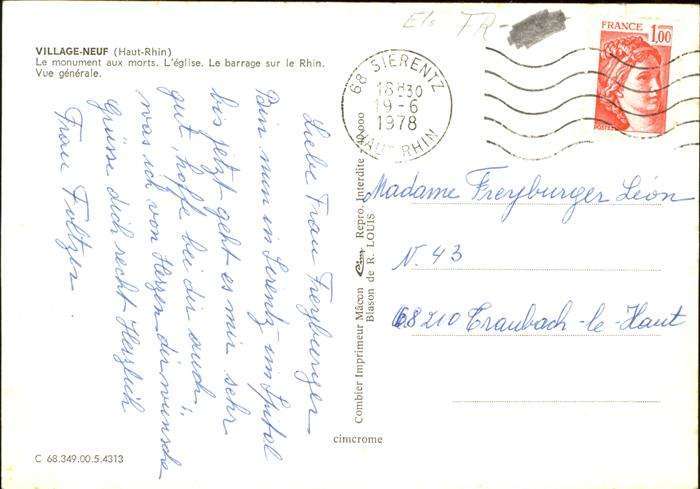 VILLAGE-NEUF (Haut-Rhin)
Le monument aux morts. L'église. Le barrage sur le Rhin.
Vue générale.
Liebe Frau Freyburger
Bin nun in Sirentz im Spital
bis jetzt geht es mir sehr
gut, hoffe bei dir auch,
was ich von Herzen dir wünsche
Grüsse dich recht Herzlich
Frau Foltzer.
C 68.349.00.5.4313
Combier Imprimeur Mâcon Cim Repro. Interdite
Blason de R. LOUIS
cimcrome
FR-
68 SIERENTZ
18H30
19-6
1978
HAUT RHIN
FRANCE
1,00
POSTES
Madame Freyburger Léon
N. 43
68210 Traubach-le-Haut